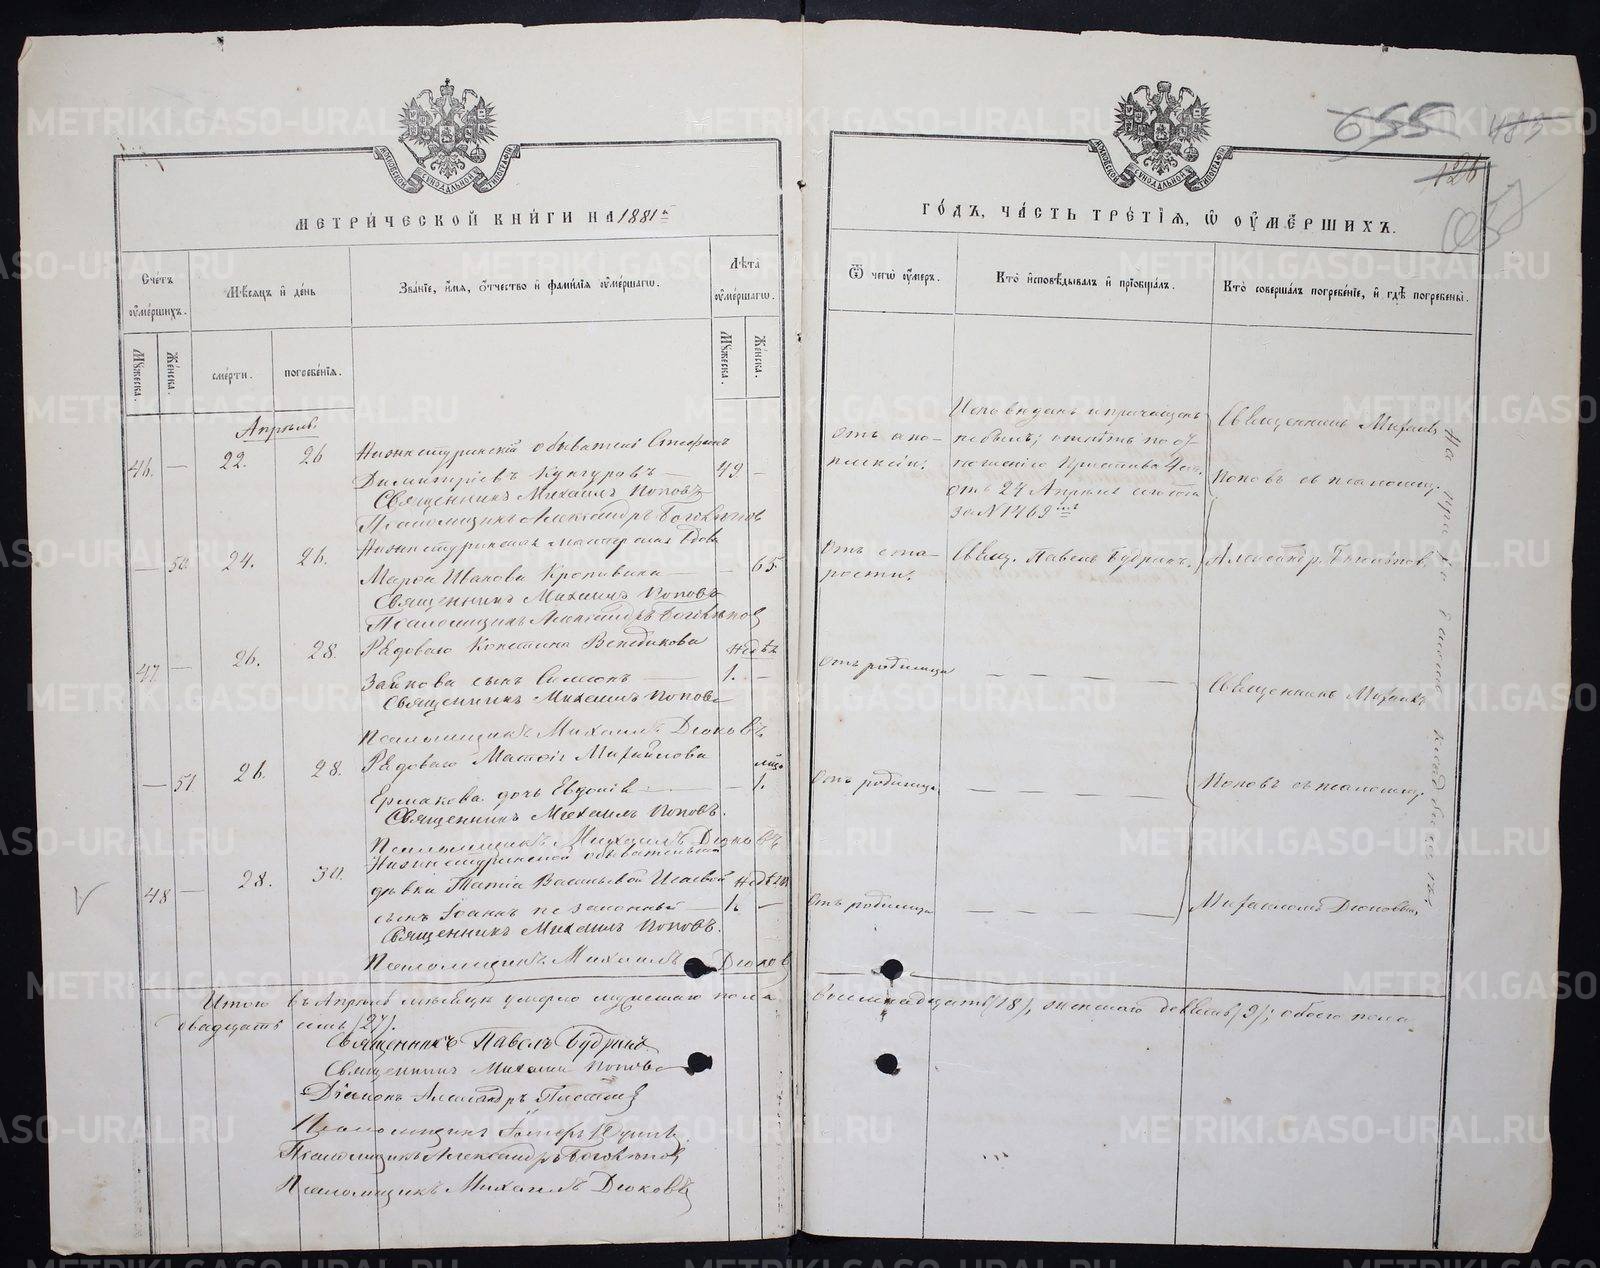 МЕТРИ́ЧЕСКОЙ КНИ́ГИ НА 1881й
ГО́ДЪ, ЧА́СТЬ ТРЕ́ТІѦ, Ѡ ОУМЕ́РШИХЪ.
655
485
126
Сче́тъ оуме́ршихъ.
Мѣсяцъ и де́нь
Зва́ніе, и́мя, о́тчество и фами́лія оуме́ршагѡ.
Лѣта̀ оуме́ршагѡ.
Ѿ чегѡ̀ оу́меръ.
Кто̀ исповѣ́дывалъ и пріобща́лъ.
Кто̀ соверша́лъ погребе́ніе, и гдѣ̀ погребены̀.
Мꙋ́жеска.
Же́нска.
сме́рти.
погребе́нія.
Мꙋ́жеска.
Же́нска.
Апрѣль
46. — 22. 26
Нижнетуринскій обыватель Стефанъ
Димитріевъ Кунгуровъ — 49 —
Священникъ Михаилъ Поповъ
Псаломщикъ Александръ Боголѣповъ
отъ апо-
плексіи.
Исповѣданъ и пріобщенъ
не былъ; отпѣтъ по от
ношенію Пристава 4 ст.
отъ 24 Апрѣля
за №1469
Священникъ Михаилъ
Поповъ съ псаломщ.
— 50 24. 26.
Нижнетуринская мастерская вдова
Марѳа Иванова — 65
Священникъ Михаилъ Поповъ
Псаломщикъ Александръ Боголѣповъ
Отъ ста-
рости.
Свящ. Павелъ Будринъ.
Александр. Боголѣпов.
47 — 26. 28.
Рядоваго Констина Венедикова
Зайкова сынъ Симеонъ — 1. —
Священникъ Михаилъ Поповъ
Псаломщикъ Михаилъ Дюковъ
Отъ родимца
— — — —
Священникъ Михаилъ
— 51 26. 28.
Рядоваго Матѳія Михайлова
Ермакова дочь Евдокія — 1.
Священникъ Михаилъ Поповъ.
Псаломщикъ Михаилъ Дюковъ
Отъ родимца
— — — —
Поповъ съ псаломщ.
48 — 28. 30.
Нижнетуринской обывательской
дѣвки Васильевой Исаевой
сынъ Іоаннъ незаконный — 1. —
Священникъ Михаилъ Поповъ.
Псаломщикъ Михаилъ Дюковъ
Отъ родимца
— — — —
Михаиломъ Дюковымъ
Итого въ Апрѣлѣ мѣсяцѣ умерло мужескаго пола восемнадцать (18), женскаго девять (9); обоего пола
двадцать семь (27).
Священникъ Павелъ Будринъ
Священникъ Михаилъ Поповъ
Діаконъ Александръ
Псаломщикъ
Псаломщикъ Александръ Боголѣповъ
Псаломщикъ Михаилъ Дюковъ
METRIKI.GASO-URAL.RU